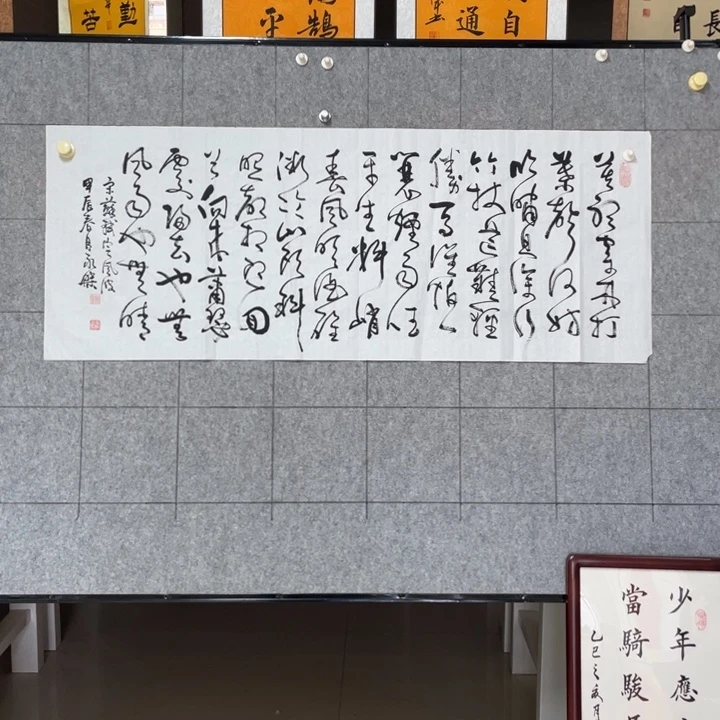 勤
苦
鵠
平
自
通
長
自
莫聽穿林打
葉聲何妨
吟嘯且徐行
竹杖芒鞋輕
勝馬誰怕一
蓑煙雨任
平生料峭
春風吹酒醒
微冷山頭斜
照却相迎回
首向來蕭瑟
處歸去也無
風雨也無晴
宋蘇軾定風波
甲辰春月永
少年應
當騎駿
乙巳之